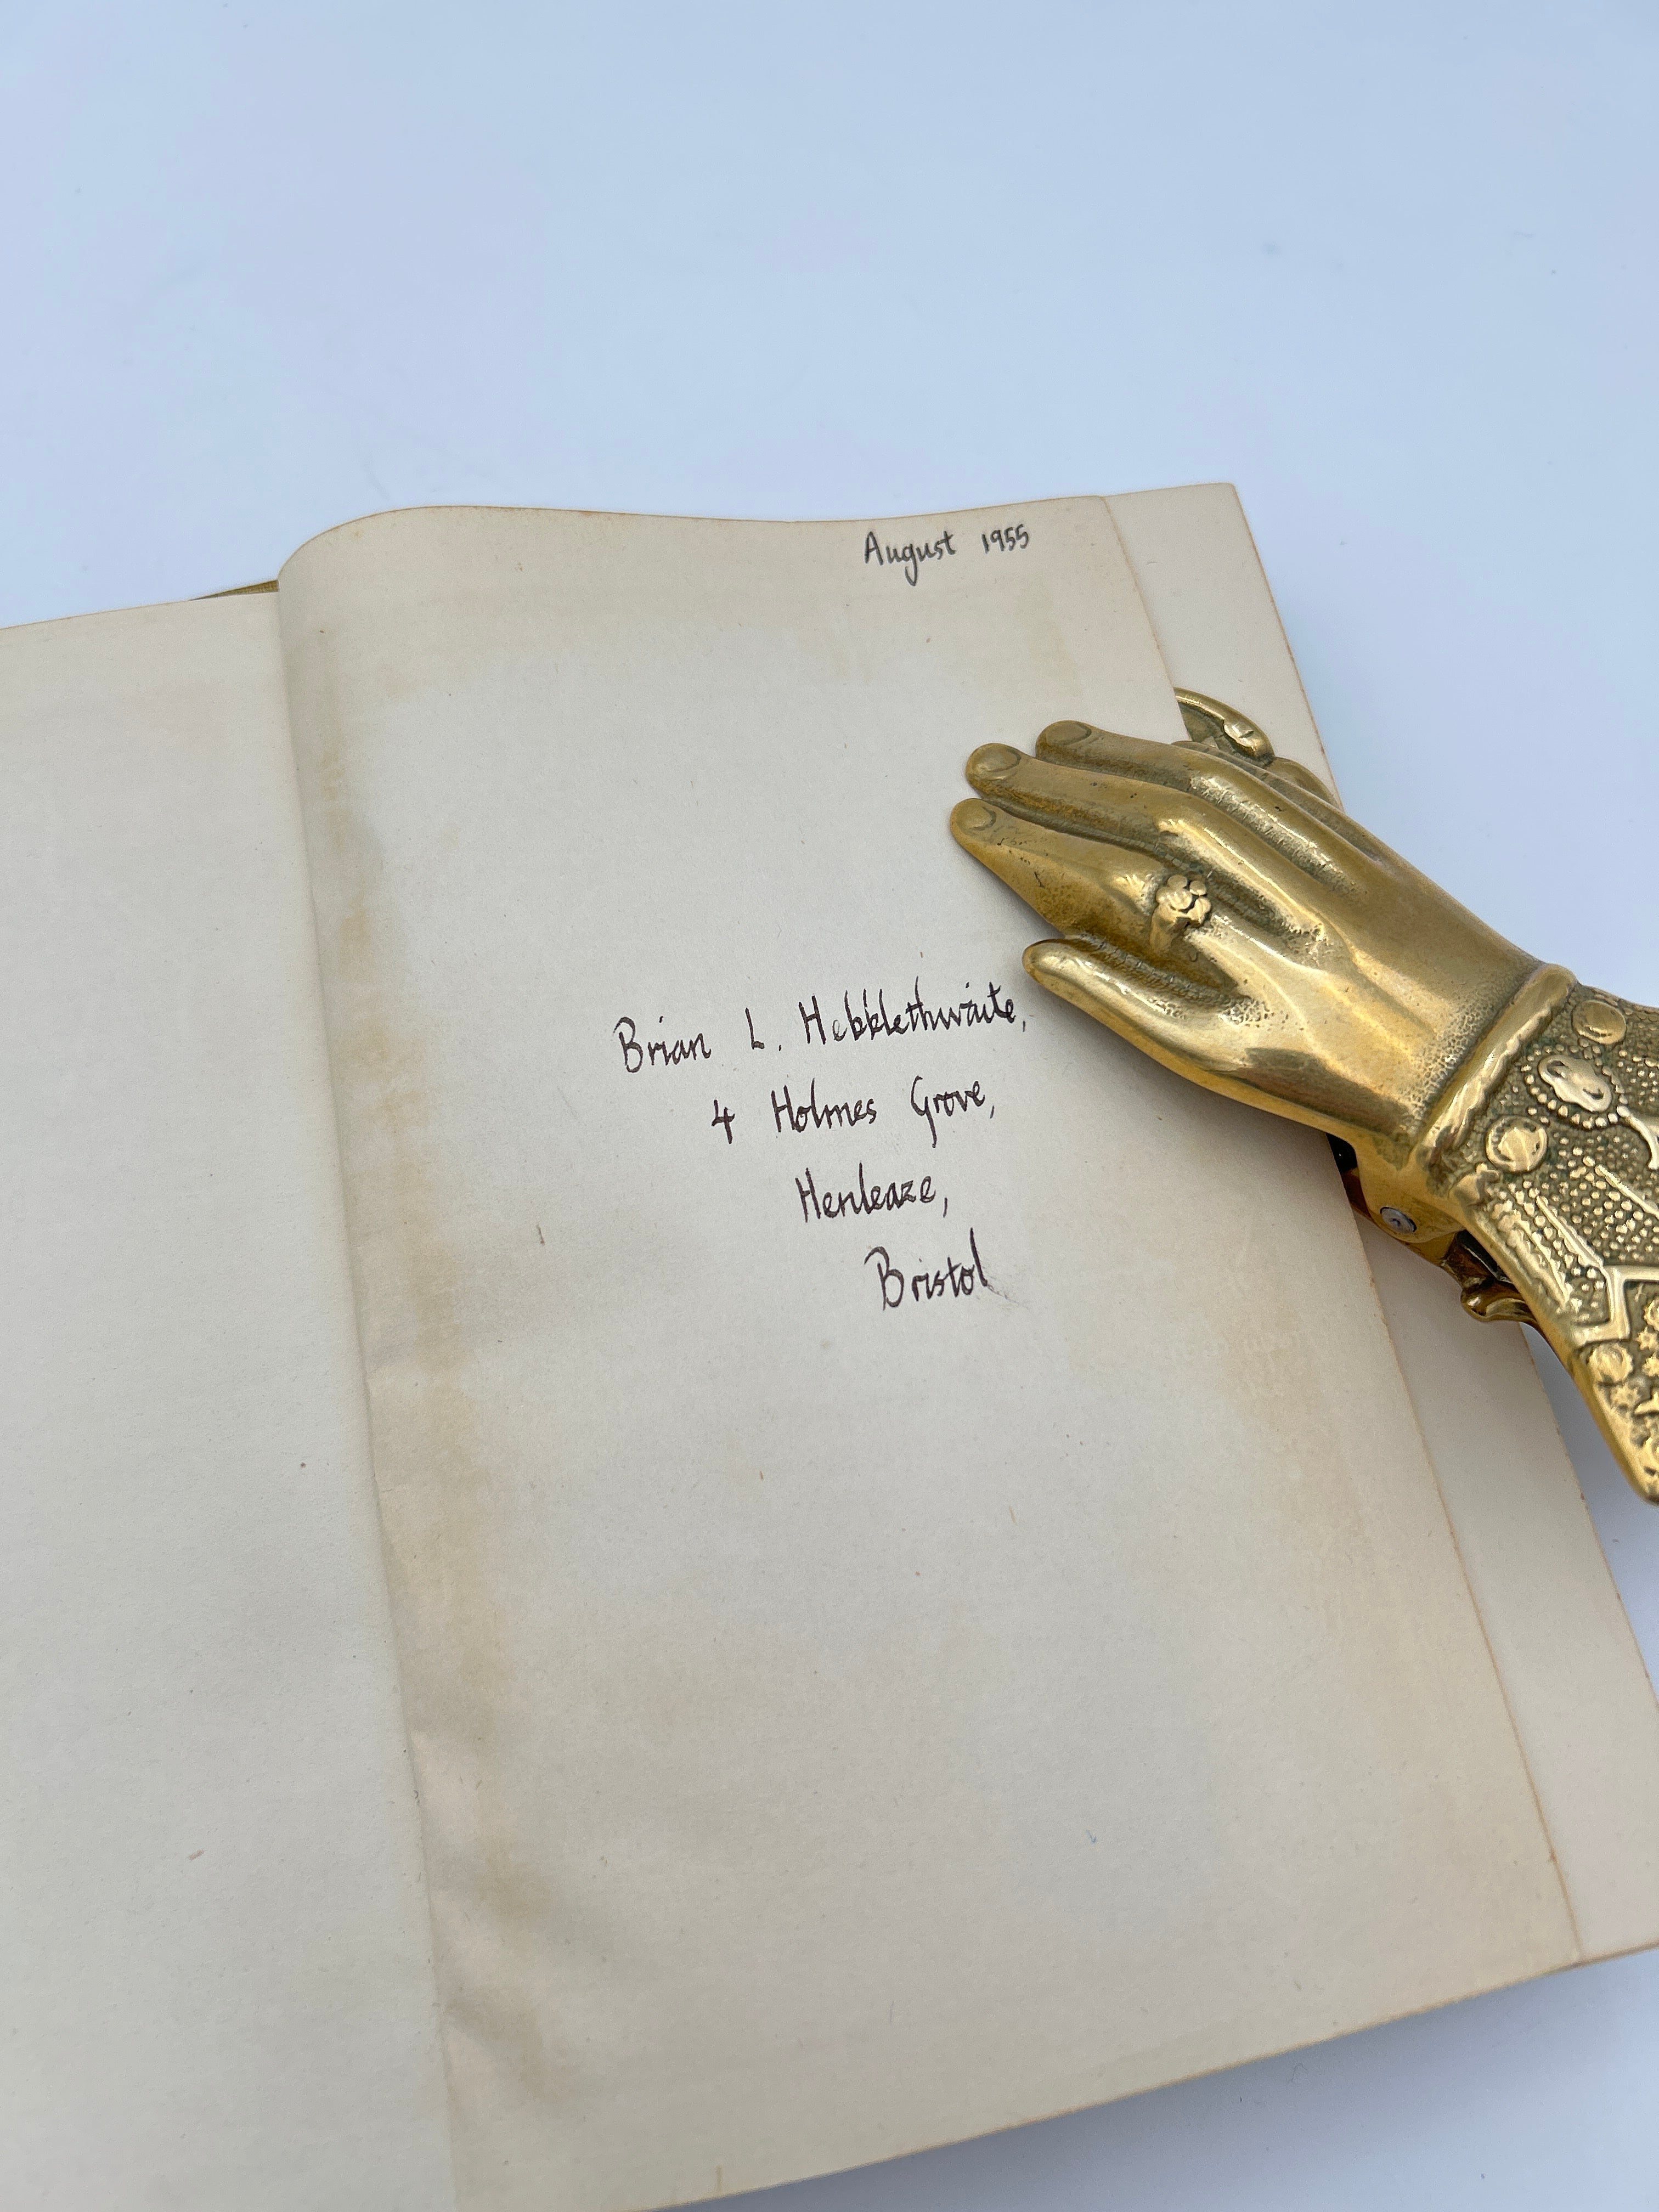 August 1955
Brian L. Hebblethwaite,
4 Holmes Grove,
Henleaze,
Bristol